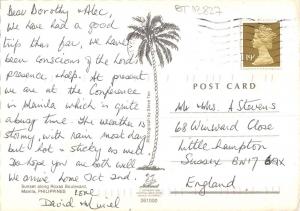 Dear Dorothy & Alec,
We have had a good
trip thus far, we have
been conscious of the Lord's
presence & help. At present
we are at the Conference
in Manila which is quite
a busy time. The weather is
stormy, with rain most days
but hot & sticky as well.
Do hope you are both well
We arrive home Oct 2nd.
Love
David &
Sunset along Roxas Boulevard,
Manila, PHILIPPINES
361000
19P
POST CARD
Mr & Mrs. A Stevens
68 Windward Close
Little Hampton
Sussex BN17 6QX
England